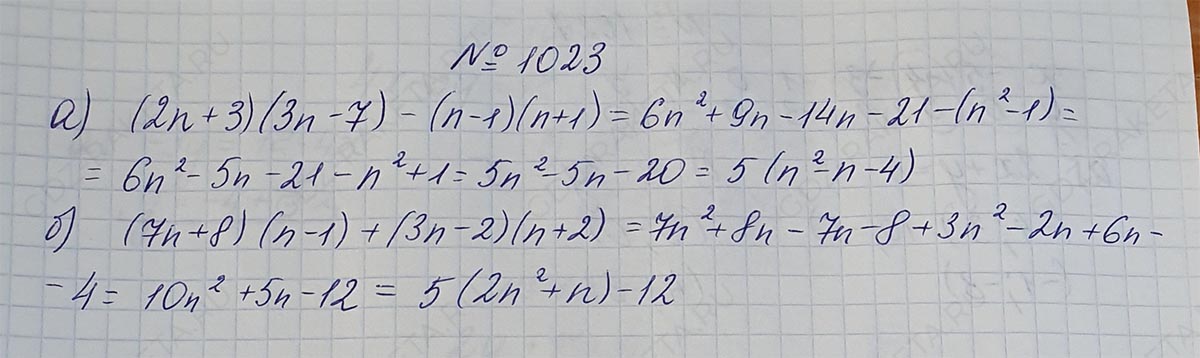 № 1023
а) (2n+3)(3n-7)-(n-1)(n+1)=6n²+9n-14n-21-(n²-1)=
=6n²-5n-21-n²+1=5n²-5n-20=5(n²-n-4)
б) (7n+8)(n-1)+(3n-2)(n+2)=7n²+8n-7n-8+3n²-2n+6n-
-4=10n²+5n-12=5(2n²+n)-12